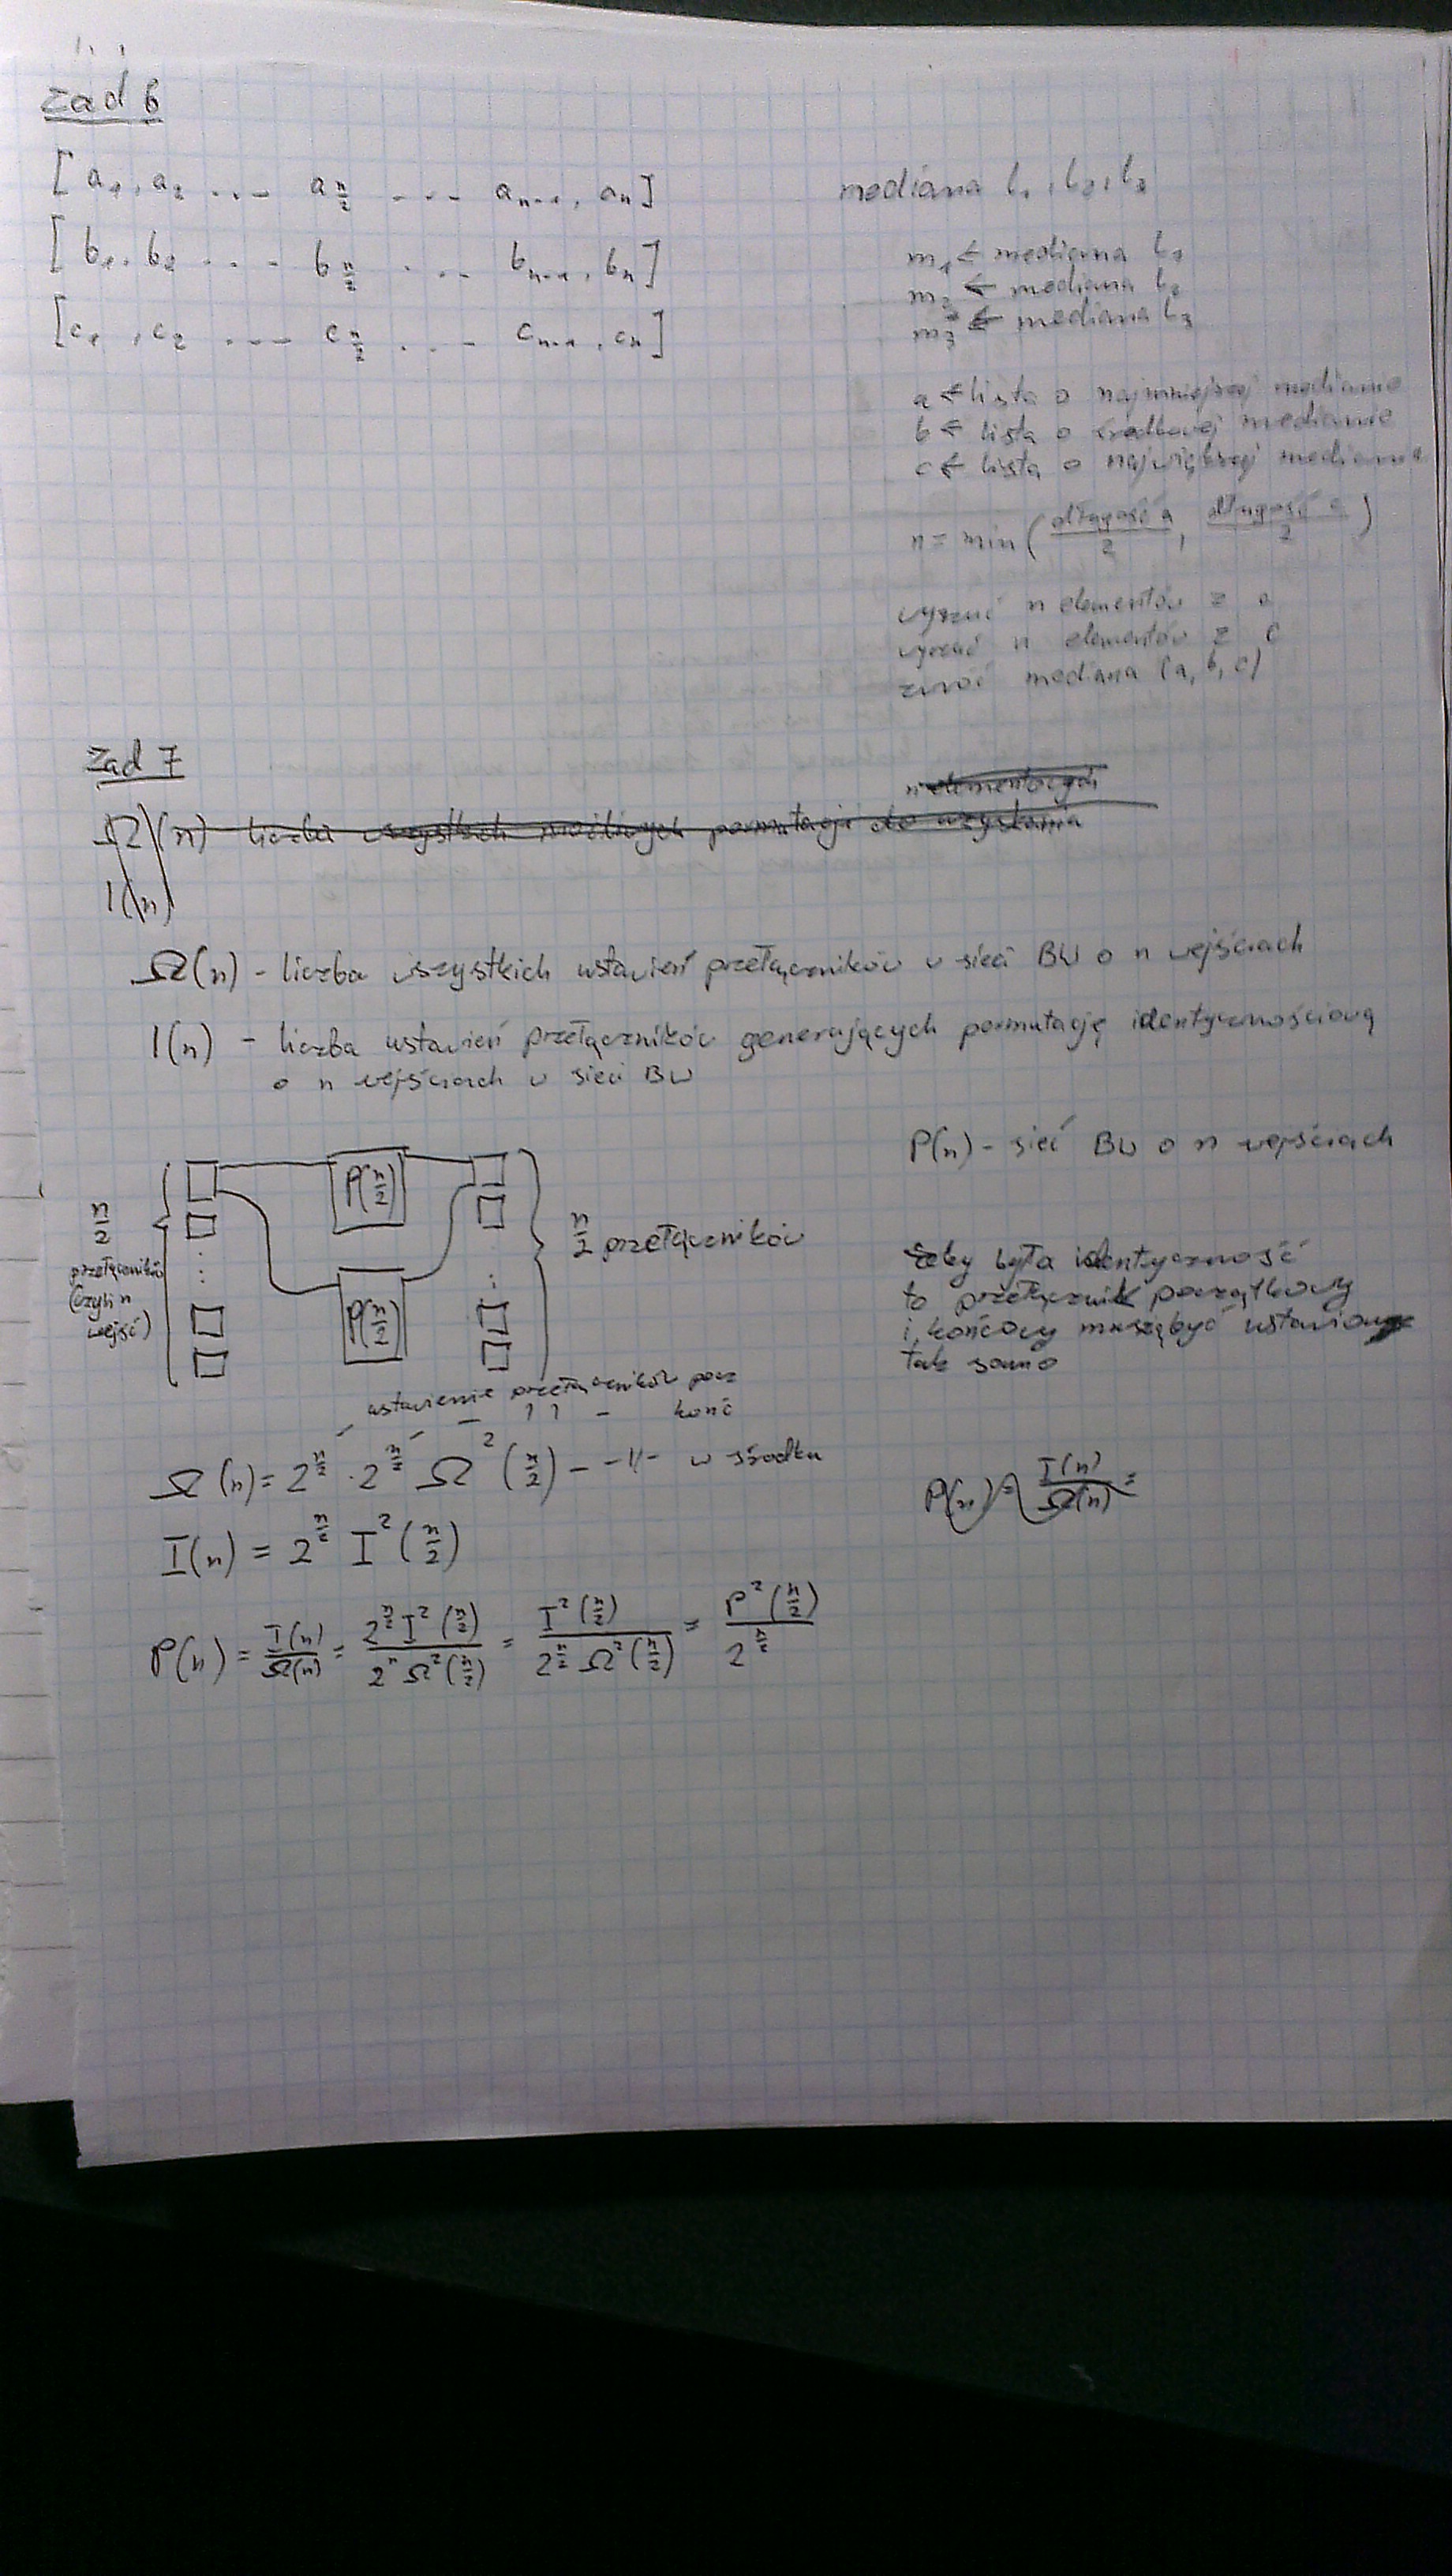 zad 6
[a₁, a₂ ... a_{n/2} ... a_{n-1}, a_n]
[b₁, b₂ ... b_{n/2} ... b_{n-1}, b_n]
[c₁, c₂ ... c_{n/2} ... c_{n-1}, c_n]
mediana l₁, l₂, l₃
m₁ ← mediana l₁
m₂ ← mediana l₂
m₃ ← mediana l₃
a ← lista o najmniejszej medianie
b ← lista o środkowej medianie
c ← lista o największej medianie
n = min(długość a/2, długość c/2)
wyrzuć n elementów z a
wyrzuć n elementów z c
zwróć mediana (a, b, c)
Zad 7
n elementowych
Ω(n) liczba wszystkich możliwych permutacji do uzyskania
I(n)
Ω(n) - liczba wszystkich ustawień przełączników w sieci BW o n wejściach
I(n) - liczba ustawień przełączników generujących permutację identycznościową
o n wejściach w sieci BW
P(n) - sieć BW o n wejściach
n/2
przełączników
(czyli n
wejść)
P(n/2)
P(n/2)
n/2 przełączników
Żeby była identyczność
to przełącznik początkowy
i końcowy muszą być ustawione
tak samo
ustawienie przełączników pocz
- 11 - końc
Ω(n) = 2^{n/2} · 2^{n/2} Ω²(n/2) - -11- w środku
I(n) = 2^{n/2} I²(n/2)
P(n) = I(n)/Ω(n) =
P(n) = I(n)/Ω(n) = 2^{n/2} I²(n/2) / 2^n Ω²(n/2) = I²(n/2) / 2^{n/2} Ω²(n/2) = P²(n/2) / 2^{n/2}